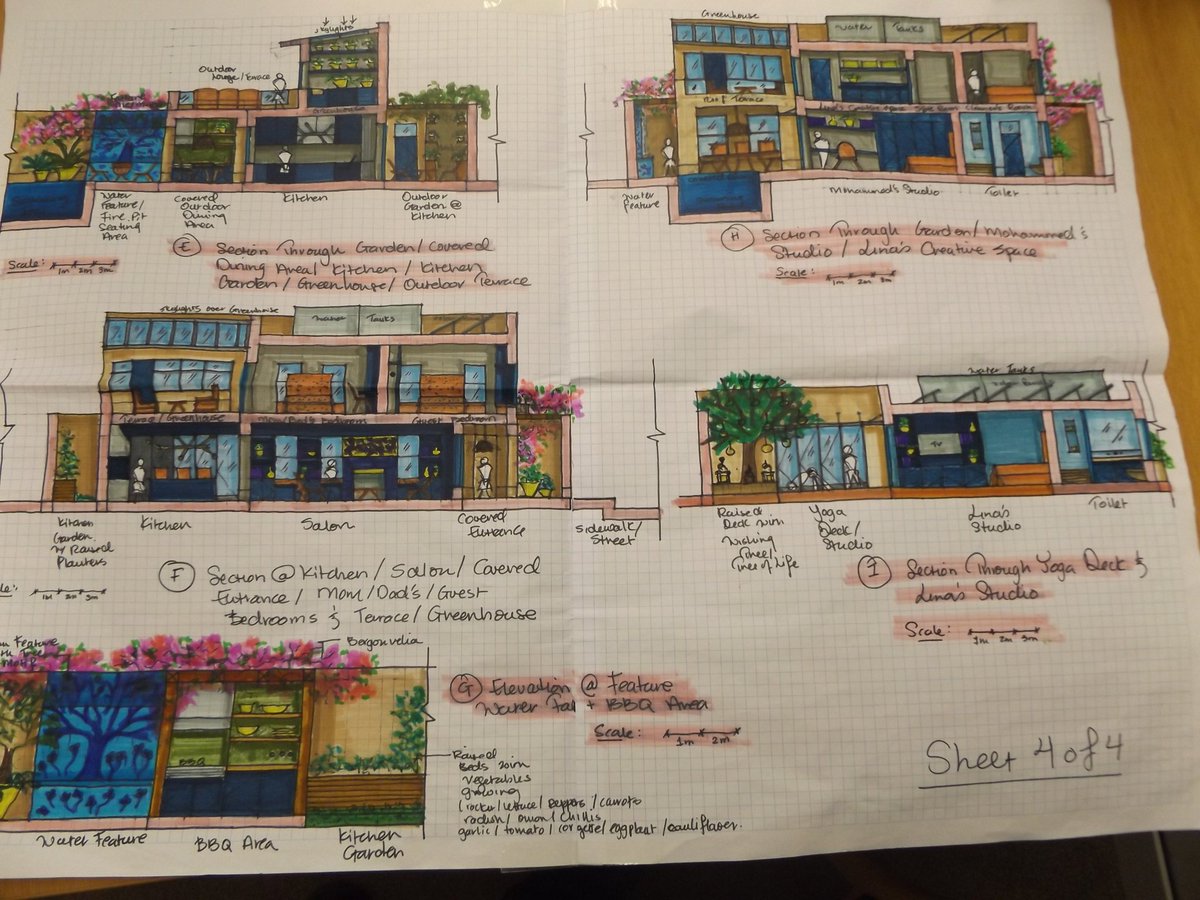 Skylights
Outdoor
Lounge/Terrace
Greenhouse
Water
Feature/
Fire Pit
Seating
Area
Covered
Outdoor
Dining
Area
Kitchen
Outdoor
Garden @
Kitchen
E
Section Through Garden/Covered
Dining Area/ Kitchen / Kitchen
Garden/Greenhouse/Outdoor Terrace
Scale:
1m 2m 3m
Greenhouse
Water Tanks
Roof Terrace
Water
Feature
Mohammed's Studio
Toilet
H
Section Through Garden/Mohammed's
Studio / Lina's Creative Space
Scale:
1m 2m 3m
Skylights over Greenhouse
Water Tanks
Terrace/Greenhouse
Mom/Dad's Bedroom
Guest Bedroom
Kitchen
Garden
w Raised
Planters
Kitchen
Salon
Covered
Entrance
Sidewalk/
Street
F
Section @ Kitchen / Salon / Covered
Entrance / Mom/Dad's/Guest
Bedrooms & Terrace/Greenhouse
1m 2m 3m
Water Tanks
TV
Raised
Deck with
Wishing
Tree/
Tree of Life
Yoga
Deck/
Studio
Lina's
Studio
Toilet
I
Section Through Yoga Deck &
Lina's Studio
Scale:
1m 2m 3m
Feature
Bergonvelia
BBQ
Water Feature
BBQ Area
Kitchen
Garden
G
Elevation @ Feature
Water Fall + BBQ Area
Scale:
1m 2m
Raised
Beds with
Vegetables
growing
(rocket/lettuce/peppers/carrots
radish/onion/chillis
garlic/tomato/corgette/eggplant/cauliflower.
Sheet 4 of 4